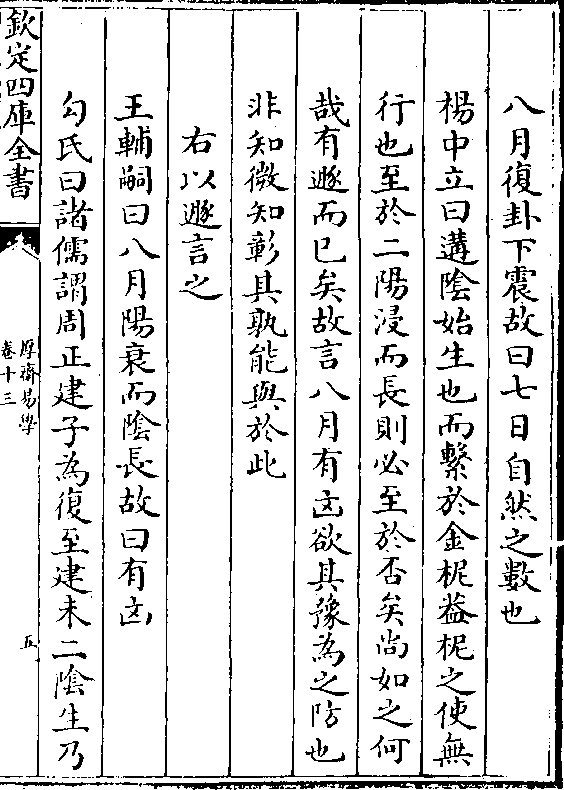 八月復卦下震故曰七日自然之數也
楊中立曰遘陰始生也而繫於金柅葢柅之使無
行也至於二陽浸而長則必至於否矣尚如之何
哉有遯而已矣故言八月有凶欲其豫為之防也
非知微知彰其孰能與於此
右以遯言之
王輔嗣曰八月陽衰而陰長故曰有凶
勾氏曰諸儒謂周正建子為復至建未二陰生乃
欽定四庫全書
厚齋易學
卷十三
五